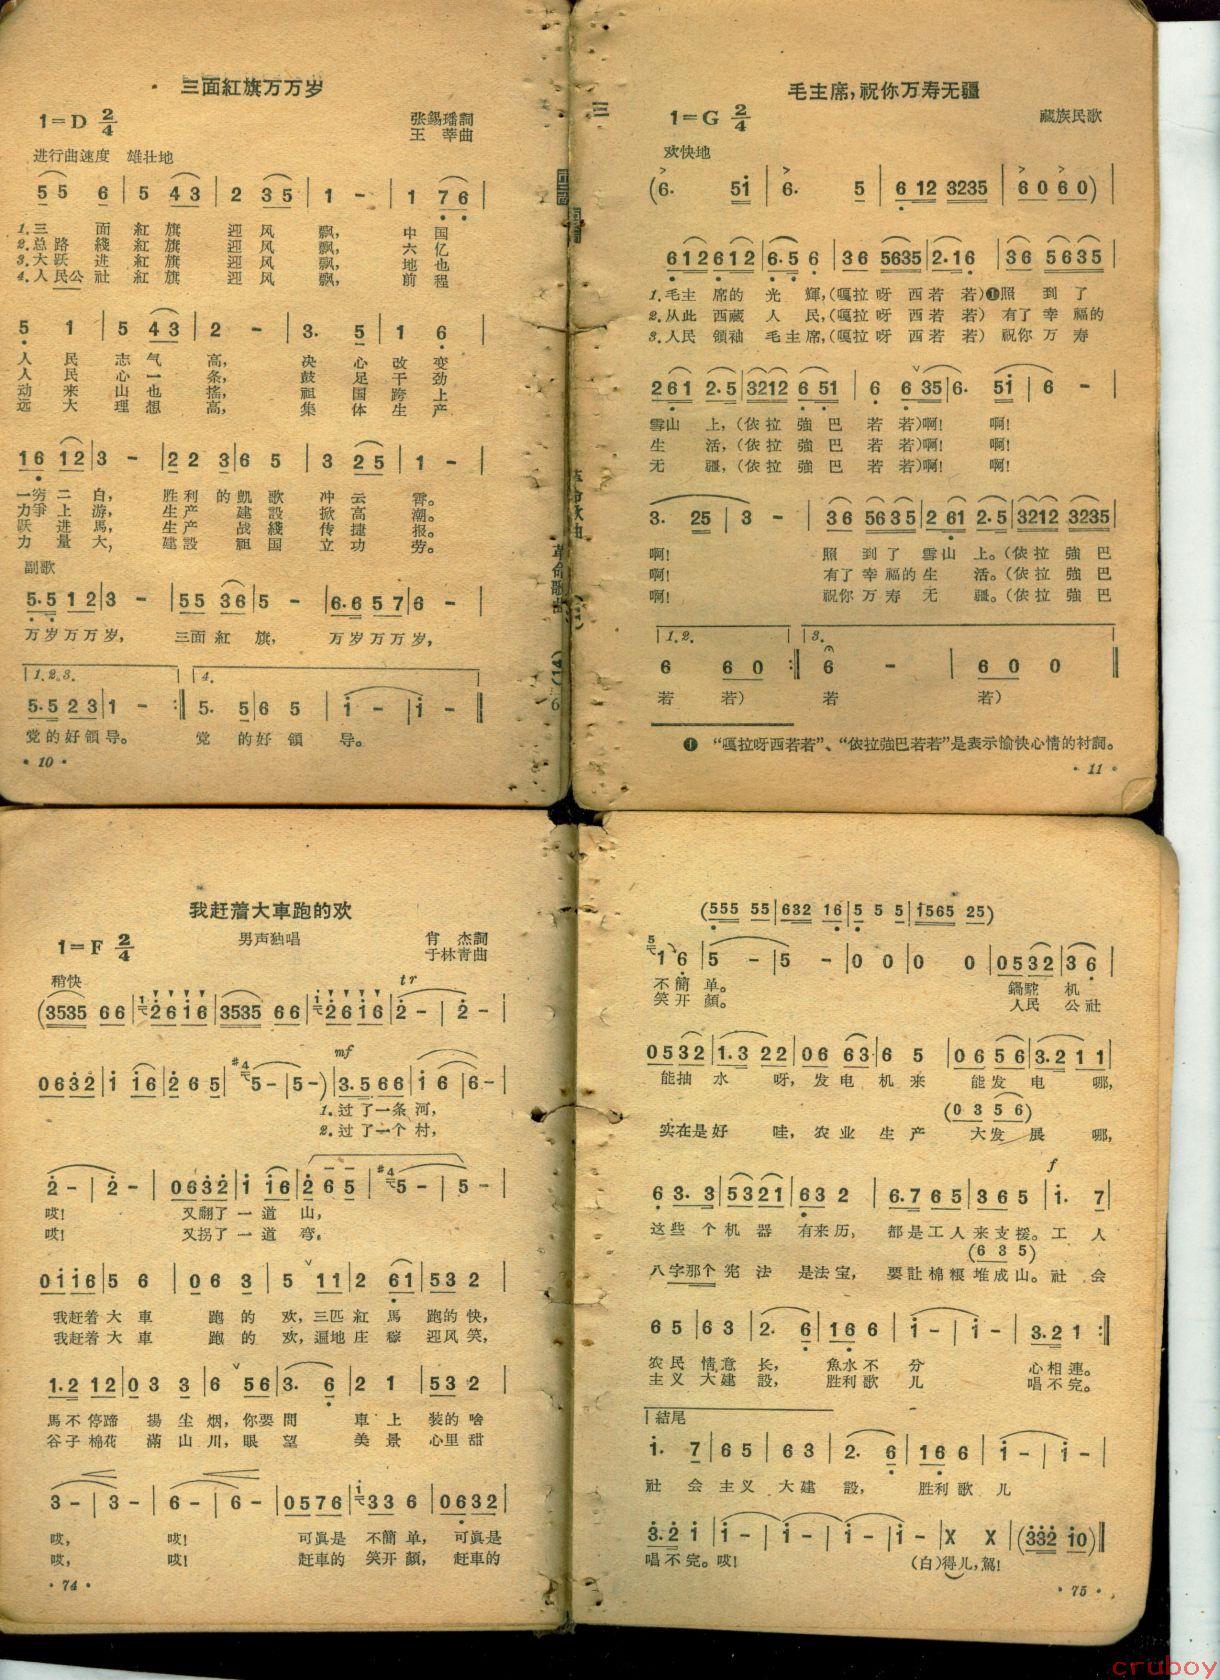 三面紅旗万万岁
1=D 2/4
张錫璠詞
王莘曲
进行曲速度 雄壮地
5 5 6 | 5 4 3 | 2 3 5 | 1 - | 1 7 6 |
1.三 面 紅 旗 迎 风 飘, 中 国
2.总路 綫 紅 旗 迎 风 飘, 六 亿
3.大跃 进 紅 旗 迎 风 飘, 地 也
4.人民公 社 紅 旗 迎 风 飘, 前 程
5 1 | 5 4 3 | 2 - | 3. 5 | 1 6 |
人 民 志 气 高, 决 心 改 变
人 民 心 一 条, 鼓 足 干 劲
动 来 山 也 搖, 祖 国 跨 上
远 大 理 想 高, 集 体 生 产
1 6 1 2 | 3 - | 2 2 3 | 6 5 | 3 2 5 | 1 - |
一穷 二 白, 胜 利 的 凱 歌 冲 云 霄。
力爭 上 游, 生 产 建 設 掀 高 潮。
跃 进 馬, 生 产 战 綫 传 捷 报。
力 量 大, 建 設 祖 国 立 功 劳。
副歌
5.5 1 2 | 3 - | 5 5 3 6 | 5 - | 6.6 5 7 | 6 - |
万岁万万岁, 三面紅 旗, 万岁万万岁,
1.2.3. 4.
5.5 2 3 | 1 - :| 5. 5 | 6 5 | i - | i - ‖
党的好領导。 党 的好領 导。
· 10 ·
毛主席,祝你万寿无疆
1=G 2/4
藏族民歌
欢快地
(6. 5i | 6. 5 | 6 12 3235 | 6 0 6 0)
612612 | 6.5 6 | 36 5635 | 2.16 | 36 5635 |
1.毛主 席的 光 輝,(嘎拉呀 西若 若)❶照 到 了
2.从此 西藏 人 民,(嘎拉呀 西若 若) 有了 幸 福的
3.人民 領袖 毛主席,(嘎拉呀 西若 若) 祝你 万 寿
261 2.5 | 3212 6 51 | 6 6 35 | 6. 5i | 6 - |
雪山 上,(依拉 強 巴 若 若)啊! 啊!
生 活,(依拉 強 巴 若 若)啊! 啊!
无 疆,(依拉 強 巴 若 若)啊! 啊!
3. 25 | 3 - | 36 5635 | 2 61 2.5 | 3212 3235 |
啊! 照 到 了 雪山 上。(依拉 強巴
啊! 有了 幸 福的 生 活。(依拉 強巴
啊! 祝你 万 寿 无 疆。(依拉 強巴
1.2. 3.
6 6 0 :‖ 6 - | 6 0 0 ‖
若 若) 若 若)
❶ “嘎拉呀西若若”、“依拉強巴若若”是表示愉快心情的衬詞。
· 11 ·
我赶着大車跑的欢
1=F 2/4
男声独唱
肖杰詞
于林青曲
稍快
(3535 66 | 2 6 i 6 | 3535 66 | 2 6 i 6 | tr 2 - | 2 - |
0632 | i i6 | 2 6 5 | 5 - | 5 -) | mf 3.5 6 6 | i 6 | 6 - |
1.过了一条 河,
2.过了一个 村,
2 - | 2 - | 0632 | i i6 | 2 6 5 | 5 - | 5 - |
哎! 又翻了 一 道 山,
哎! 又拐了 一 道 弯。
0ii6 | 5 6 | 0 6 3 | 5 11 | 2 61 | 532 |
我赶着 大 車 跑 的 欢,三匹 紅 馬 跑的 快,
我赶着 大 車 跑 的 欢,遍地 庄 稼 迎风 笑,
1.2 12 | 0 3 3 | 6 56 | 3. 6 | 2 1 | 532 |
馬不停蹄 揚 尘 烟,你要 問 車 上 装的 啥
谷子棉花 滿 山 川,眼 望 美 景 心里 甜
3 - | 3 - | 6 - | 6 - | 0576 | 33 6 | 0632 |
哎, 哎! 可眞是 不簡 单, 可眞是
哎, 哎! 赶車的 笑开 顏, 赶車的
· 74 ·
(555 55 | 632 16 | 5 5 5 | i565 25)
1 6 | 5 - | 5 - | 0 0 | 0 0 | 0532 | 3 6 |
不簡 单。 鍋駝 机
笑开 顏。 人民 公社
0532 | 1.3 22 | 06 63 | 6 5 | 06 56 | 3.2 11 |
能抽 水 呀, 发电 机 来 能发 电 哪,
(0 3 5 6)
实在是好 哇, 农业 生 产 大发 展 哪,
f
6 3. 3 | 5321 | 63 2 | 6.7 65 | 365 | i. 7 |
这些 个 机 器 有来 历, 都是工人 来支援。工 人
(6 3 5)
八字那个 宪 法 是法 宝, 要让棉粮 堆成山。社 会
6 5 | 6 3 | 2. 6 | 16 6 | i - | i - | 3.2 1 :‖
农民 情意 长, 魚水 不 分 心相連。
主义 大建 設, 胜利 歌 儿 唱不完。
結尾
i. 7 | 6 5 | 6 3 | 2. 6 | 16 6 | i - | i - |
社 会 主义 大建 設, 胜利 歌 儿
3.2 i | i - | i - | i - | i - | X X | (332 i0) ‖
唱不完。哎! (白)得儿,駕!
· 75 ·
cruboy